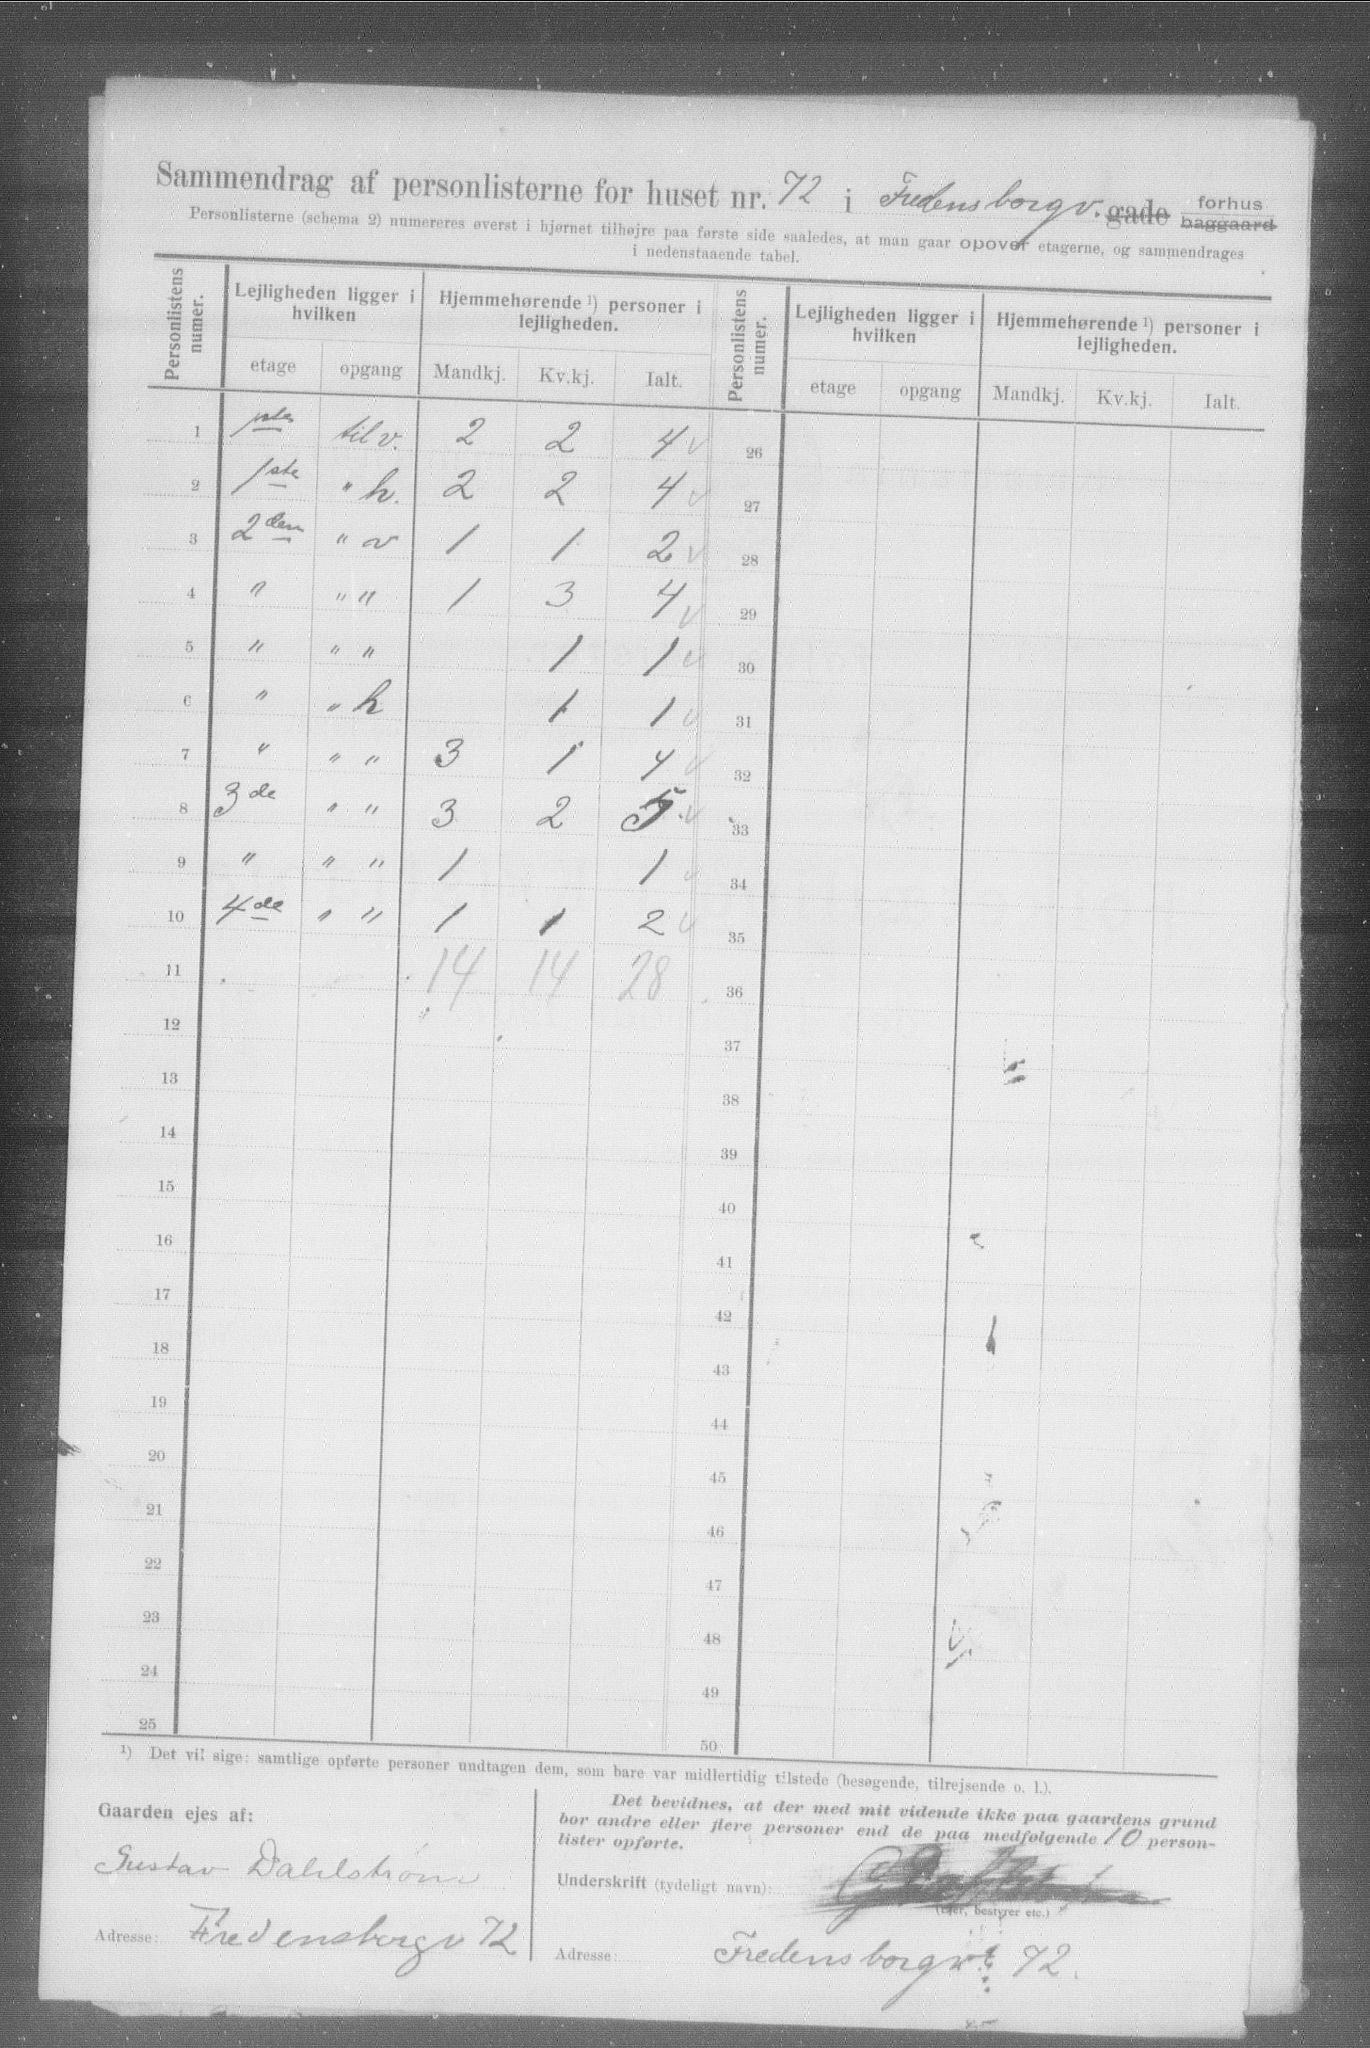 Sammendrag af personlisterne for huset nr. 72 i Fredensborgv. gade forhus baggaard
Personlisterne (schema 2) numereres øverst i hjørnet tilhøjre paa første side saaledes, at man gaar opover etagerne, og sammendrages
i nedenstaaende tabel.
Personlistens numer. Lejligheden ligger i hvilken Hjemmehørende ¹) personer i lejligheden. Personlistens numer. Lejligheden ligger i hvilken Hjemmehørende ¹) personer i lejligheden.
etage opgang Mandkj. Kv.kj. Ialt. etage opgang Mandkj. Kv.kj. Ialt.
1 1ste til v. 2 2 4 v 26
2 1ste " h. 2 2 4 v 27
3 2den " v 1 1 2 v 28
4 " " " 1 3 4 v 29
5 " " " 1 1 v 30
6 " " h 1 1 v 31
7 " " " 3 1 4 v 32
8 3de " " 3 2 5 v 33
9 " " " 1 1 v 34
10 4de " " 1 1 2 v 35
11 14 14 28 36
12 37
13 38
14 39
15 40
16 41
17 42
18 43
19 44
20 45
21 46
22 47
23 48
24 49
25 50
¹) Det vil sige: samtlige opførte personer undtagen dem, som bare var midlertidig tilstede (besøgende, tilrejsende o. l.).
Gaarden ejes af:
Gustav Dahlstrøm
Adresse: Fredensborgv 72
Det bevidnes, at der med mit vidende ikke paa gaardens grund
bor andre eller flere personer end de paa medfølgende 10 person-
lister opførte.
Underskrift (tydeligt navn):
(Ejer, bestyrer etc.)
Adresse: Fredensborgv 72.